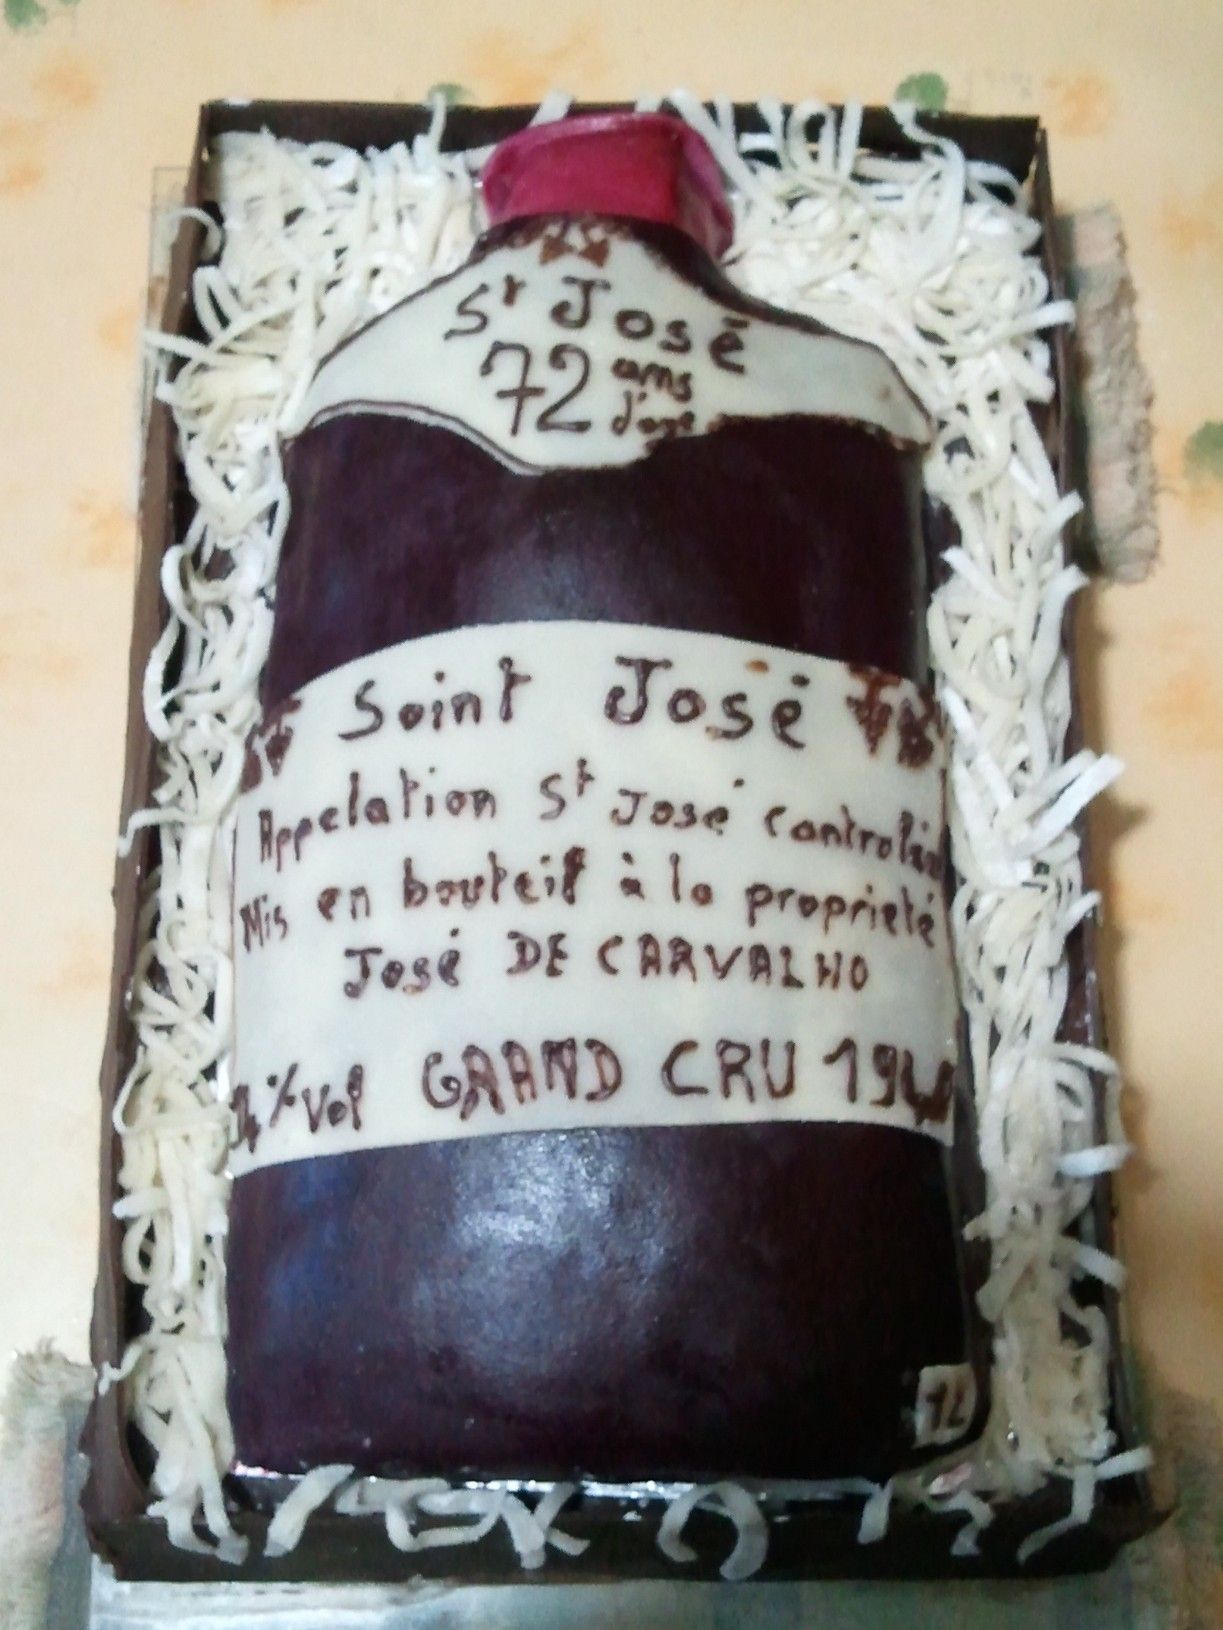 St José
72 ans
d'age
Saint José
Appelation St José controlée
Mis en bouteil à la proprieté
José DE CARVALHO
14 % Vol GRAND CRU
1L